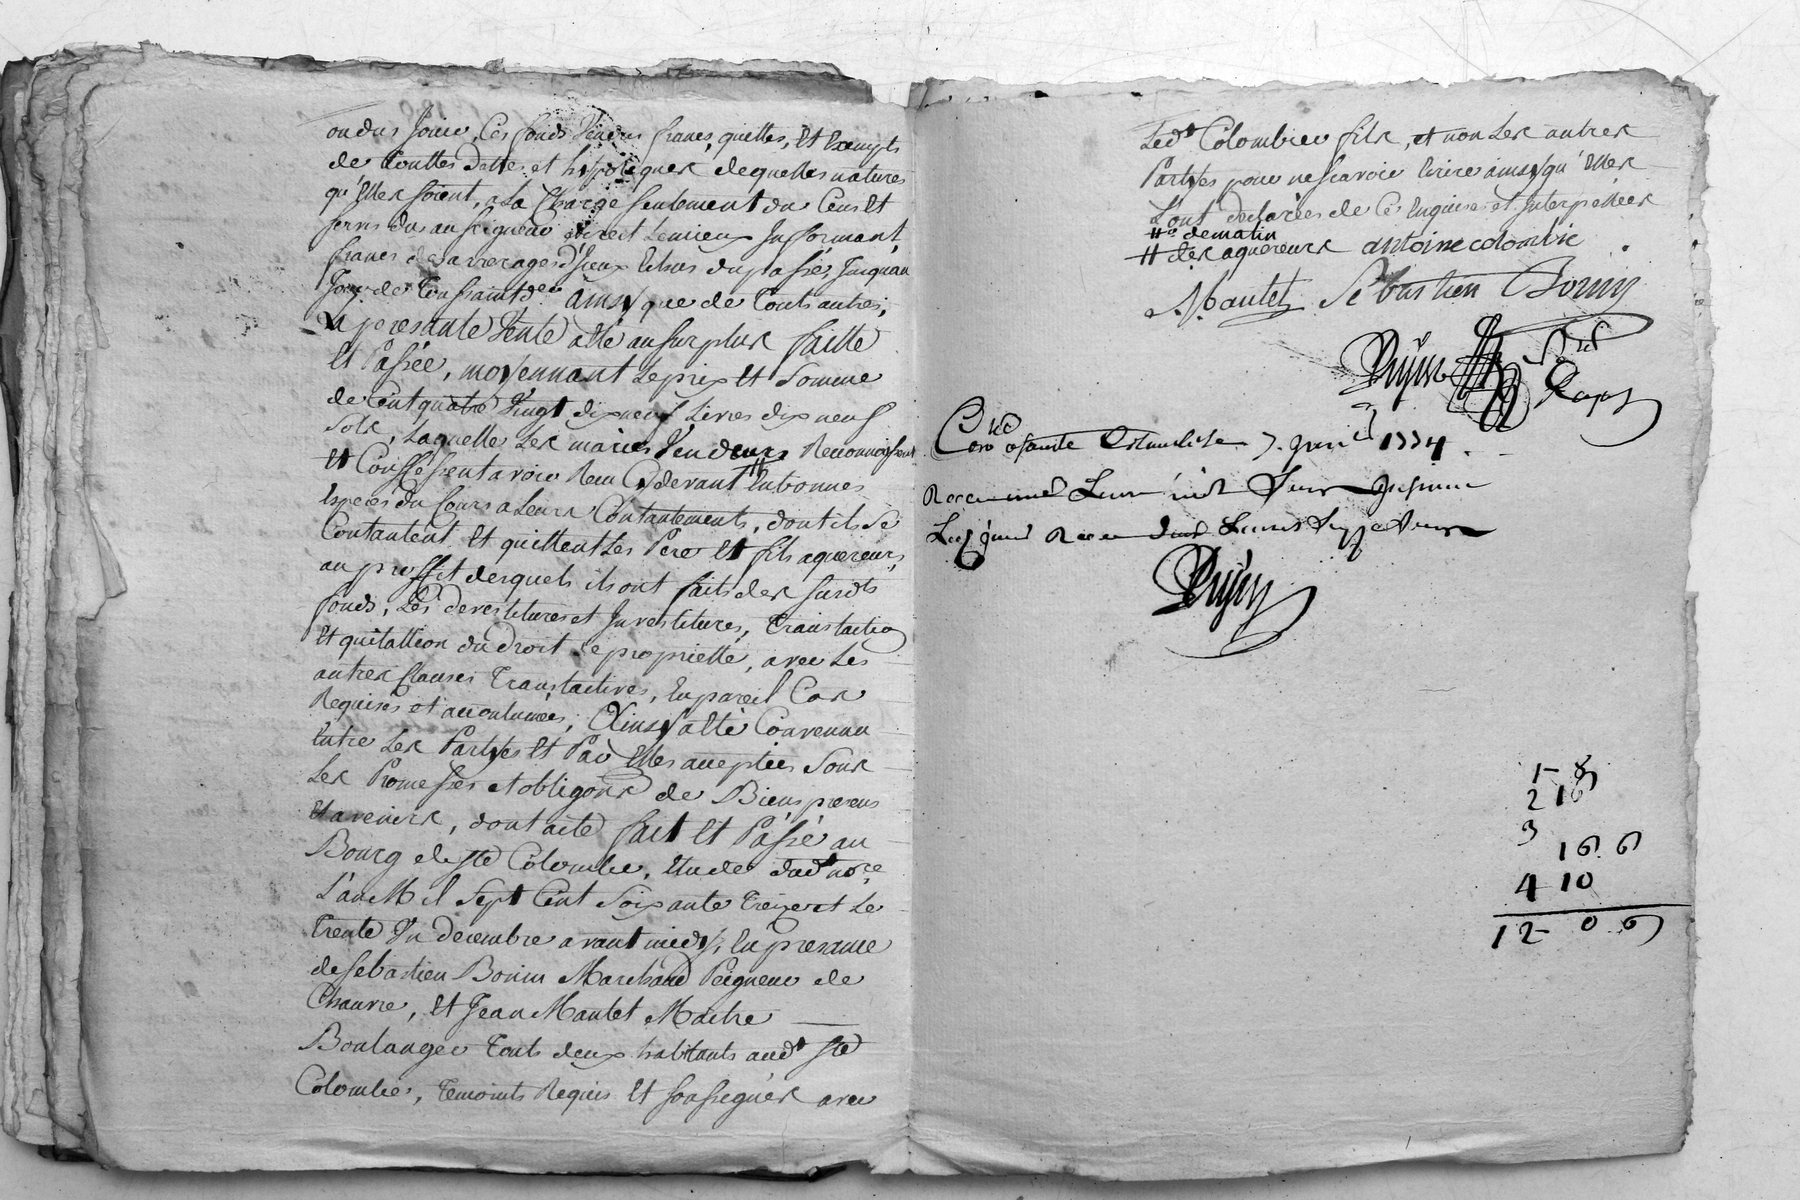 ou dus Jouir, Ces fonds Vendus francs, quittes, Et Exempts
de Touttes Dettes et hipoteques dequelles natures
qu'Elles soient, a La Charge seulement du Cens Et
servis du au seigneur direct Lemieux Jnformant,
francs des arrerages d'Jceux Echus du passés, Jusqu'au
Jour de Toussaint der. Ains'y que de Touts autres;
La presante Vente a été au surplus faitte
Et Passée, moyennant Le prix Et Somme
de Cent quatre Vingt dix neuf Livres dix neuf
Sols, Laquelle Les mariés Vendeurs Reconnoissent
Et Conffessent avoir Reçu Cydevant // En bonnes
Especes du Cours a Leurs Contantements, dont ils Se
Contantent Et quittent Les Pere Et fils aquereurs,
au proffit desquels ils ont faits des susdts
fonds, Les devestitures et Jnvestitures, Translation
Et quittation du droit de propriette, avec Les
autres Clauses Translatives, En pareil Cas
Requises et accoutumées; Ains'y a été Convenu
Entre Les Partyes Et Par Elles acceptées Sous
Les Promesses et obligons de Biens presens
Et avenirs, dont acte fait Et Passé au
Bourg de Ste Colombe, Etude dud. nore.
L'an Mil Sept Cent Soixante Treize et Le
Trente Un decembre avant midy, En presance
de Sebastien Bonin Marchand Peigneur de
Chanvre, Et Jean Mautet Maitre
Boulanger Touts deux habitants aud. Ste
Colombe, Temoints Requis Et soussignés avec
Led. Colombier fils, et non Les autres
Partyes pour ne scavoir Ecrire ains'y qu'Elles
L'ont declarées de Ce Enquises et Jnterpellées
// de matin
// des aquereurs antoine colombie
J. Mautet Sebastien Bonin
Conlé a sainte Colombe Le 7. Janier 1774.
Reçu
1 8
2 16
3
16 6
4 10
12 0 6